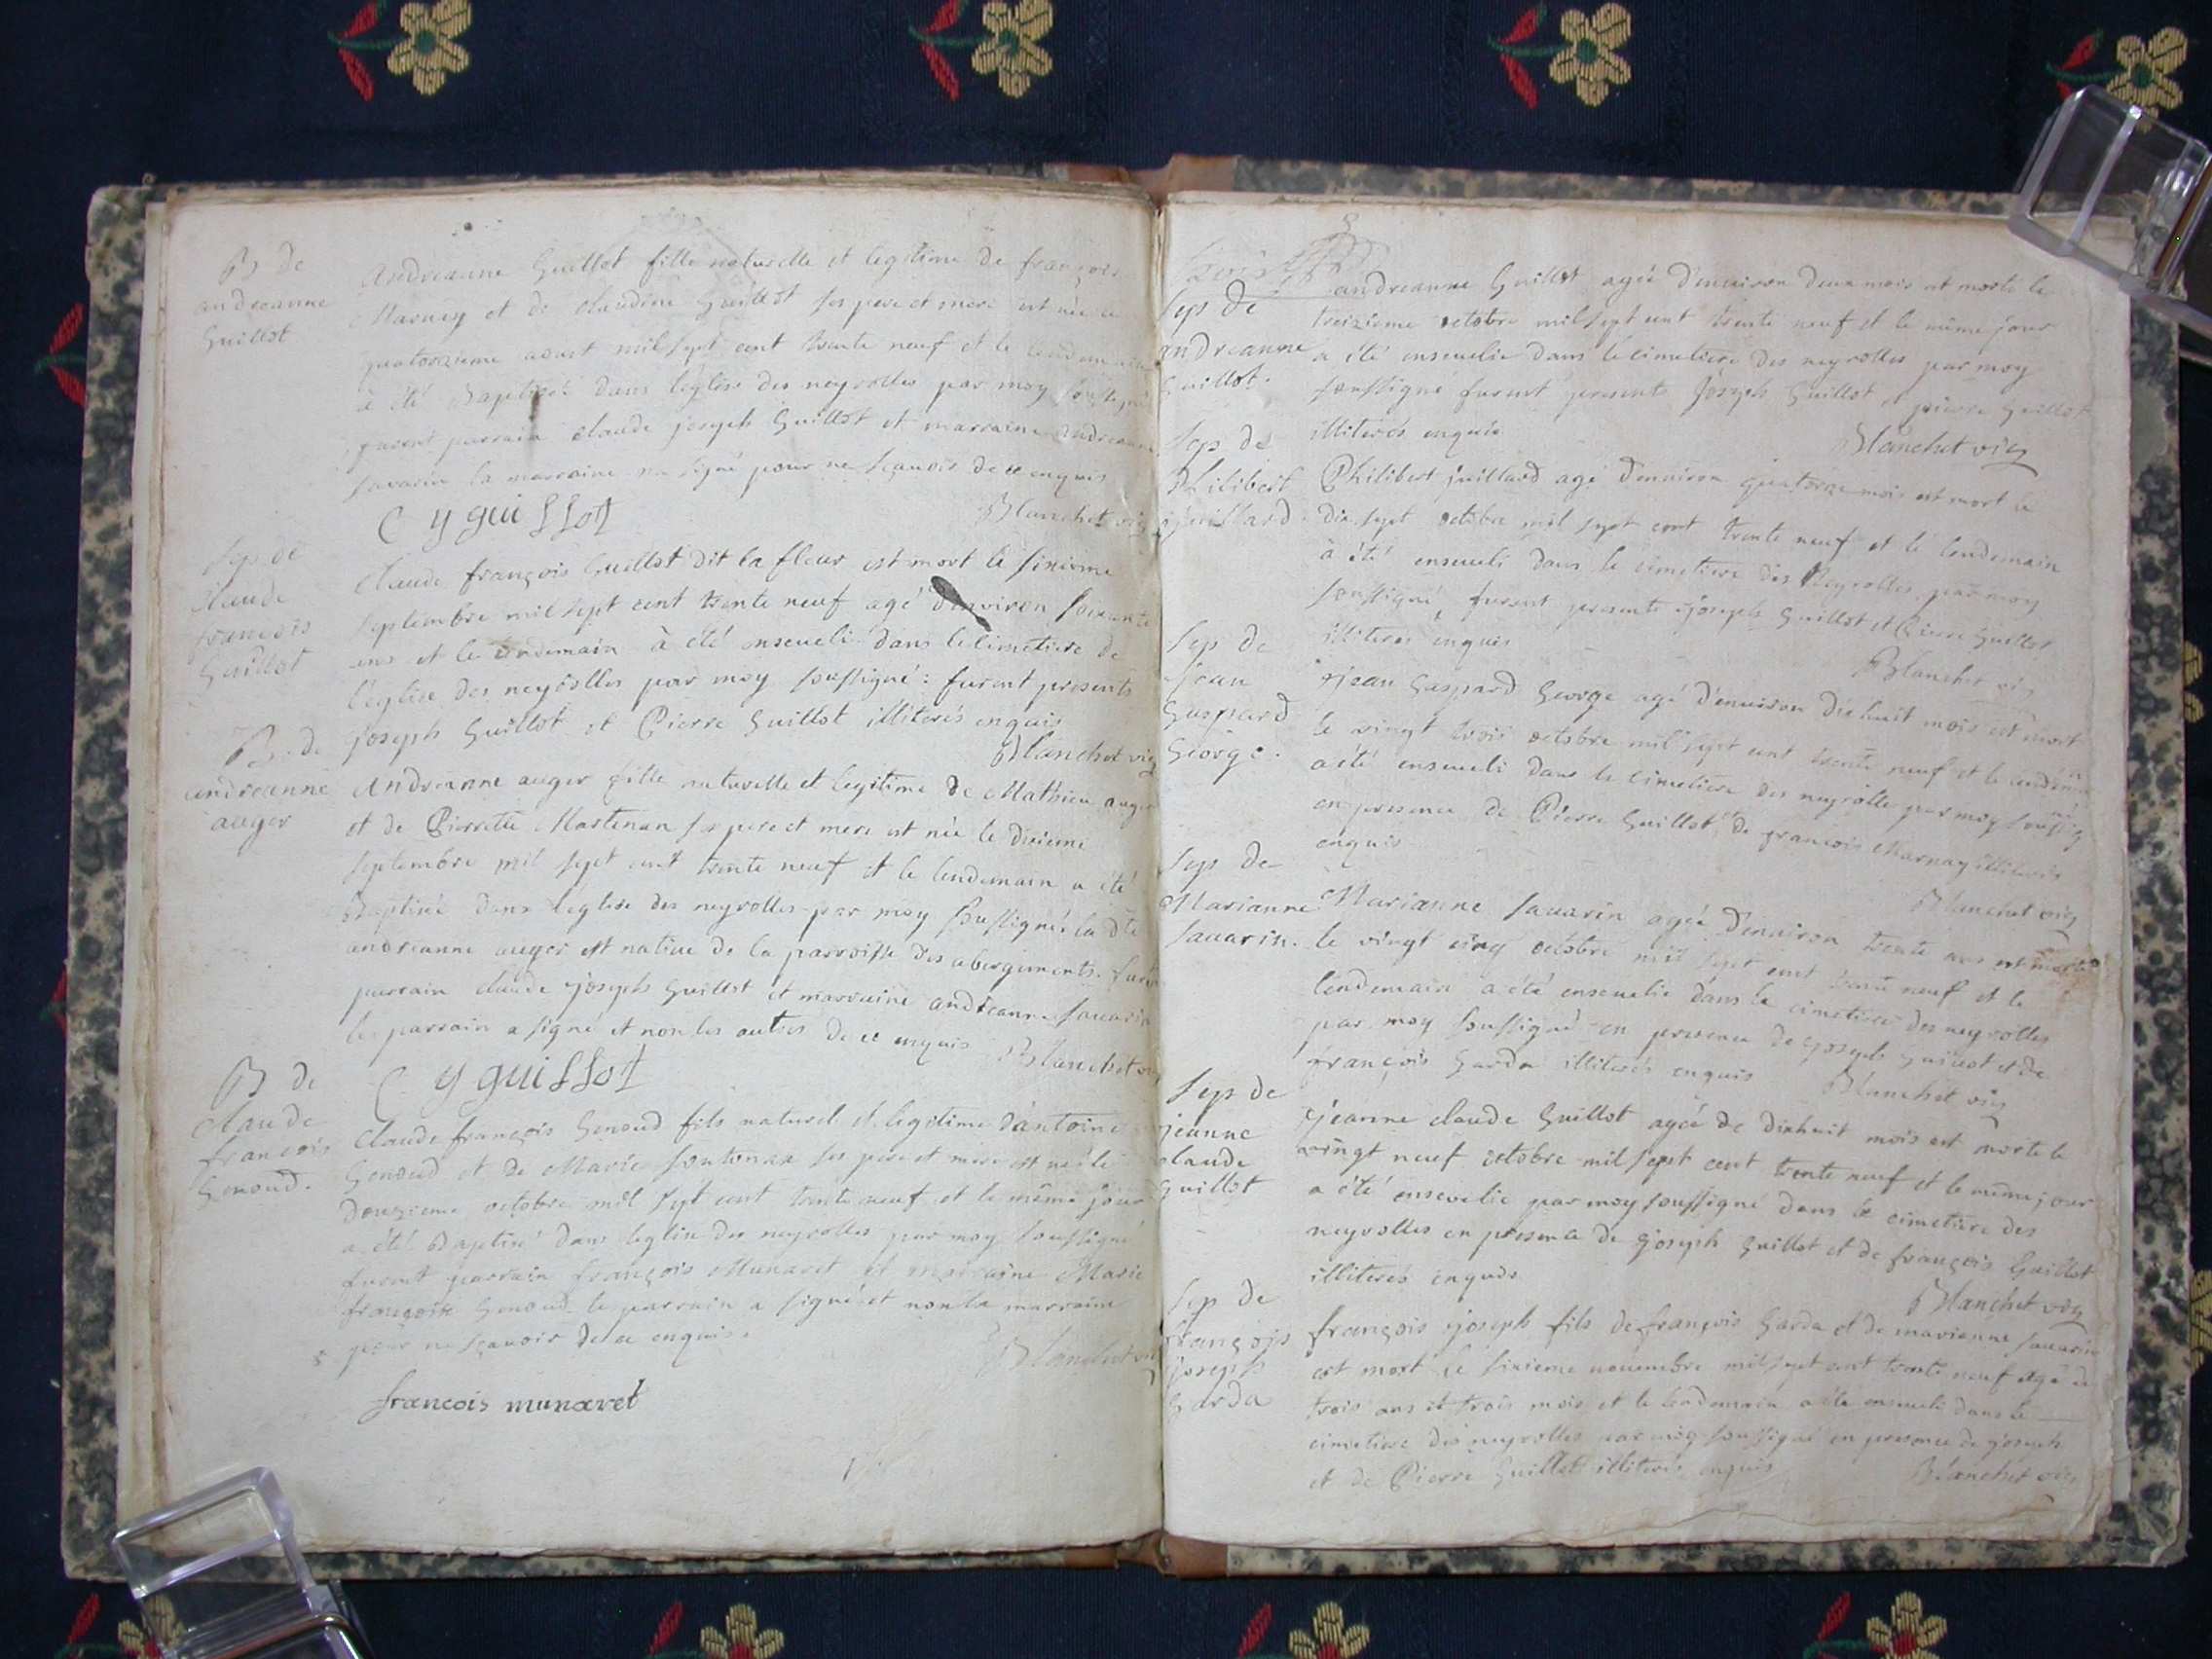 B de
andreanne
Guillot
Andreanne Guillot fille naturelle et legitime de françois
Marnay et de claudine Guillot ses pere et mere est née le
quatorzieme aoust mil sept cent trente neuf et le lendemain
à été Baptisée dans l'église des neyrolles par moy soussigné
furent parrain claude joseph Guillot et marraine andreanne
savarin la marraine na signé pour ne sçavoir de ce enquis
C y guillot
Blanchet vic
Sep de
claude
francois
Guillot
Claude françois Guillot dit la fleur est mort le sixieme
septembre mil sept cent trente neuf agé d'environ soixante
ans et le lendemain à été enseveli dans le cimetiere de
l'église des neyrolles par moy soussigné : furent presents
joseph Guillot et Pierre Guillot illiterés enquis
Blanchet vic
B. de
andreanne
auger
Andreanne auger fille naturelle et legitime de Mathieu auger
et de Pierrette Martenan ses pere et mere est née le dixieme
septembre mil sept cent trente neuf et le lendemain a été
Baptisée dans l'église des neyrolles par moy soussigné la dte
andreanne auger est native de la parroisse des abergements. furent
parrain claude joseph Guillot et marraine andreanne savarin
le parrain a signé et non les autres de ce enquis
Blanchet vic
C. y guillot
B de
claude
francois
Genoud.
Claude françois Genoud fils naturel et legitime d'antoine
Genoud et de Marie ses pere et mere est né le
douzieme octobre mil sept cent trente neuf et le même jour
a été Baptisé dans l'eglise des neyrolles par moy soussigné
furent parrain françois Munaret et marraine Marie
françoise Genoud le parrain a signé et non la marraine
pour ne sçavoir de ce enquis.
Blanchet vic
francois munaret
Sep de
andreanne
Guillot.
andreanne Guillot agée d'environ deux mois est morte le
treizieme octobre mil sept cent trente neuf et le même jour
a été ensevelie dans le cimetiere des neyrolles par moy
soussigné furent presents joseph Guillot et pierre Guillot
illiterés enquis
Blanchet vic
Sep de
Philibert
juillard.
Philibert juillard agé d'environ quatorze mois est mort le
dix sept octobre mil sept cent trente neuf et le lendemain
à été enseveli dans le cimetiere des Neyrolles par moy
soussigné, furent presents joseph Guillot et Pierre Guillot
illiteres enquis
Blanchet vic
Sep de
jean
Gaspard
George.
jean Gaspard George agé d'environ dixhuit mois est mort
le vingt trois octobre mil sept cent trente neuf et le lendemain
a été enseveli dans le cimetiere des neyrolle par moy soussig
en presence de Pierre Guillot de francois Marnay illiterés
enquis
Blanchet vic
Sep de
Marianne
savarin.
Marianne savarin agée d'environ trente ans est morte
le vingt cinq octobre mil sept cent trente neuf et le
lendemain a été ensevelie dans le cimetiere des neyrolles
par moy soussigné en presence de joseph Guillot et de
françois Garda illiterés enquis
Blanchet vic
Sep de
jeanne
claude
Guillot
jeanne claude Guillot agée de dixhuit mois est morte le
vingt neuf octobre mil sept cent trente neuf et le même jour
a été ensevelie par moy soussigné dans le cimetiere des
neyrolles en presence de joseph Guillot et de françois Guillot
illiterés enquis
Blanchet vic
Sep de
françois
joseph
Garda
françois joseph fils de françois Garda et de marianne savarin
est mort le sixieme novembre mil sept cent trente neuf agé de
trois ans et trois mois et le lendemain a été enseveli dans le
cimetiere des neyrolles par moy soussigné en presence de joseph
et de Pierre Guillot illiterés enquis
Blanchet vic